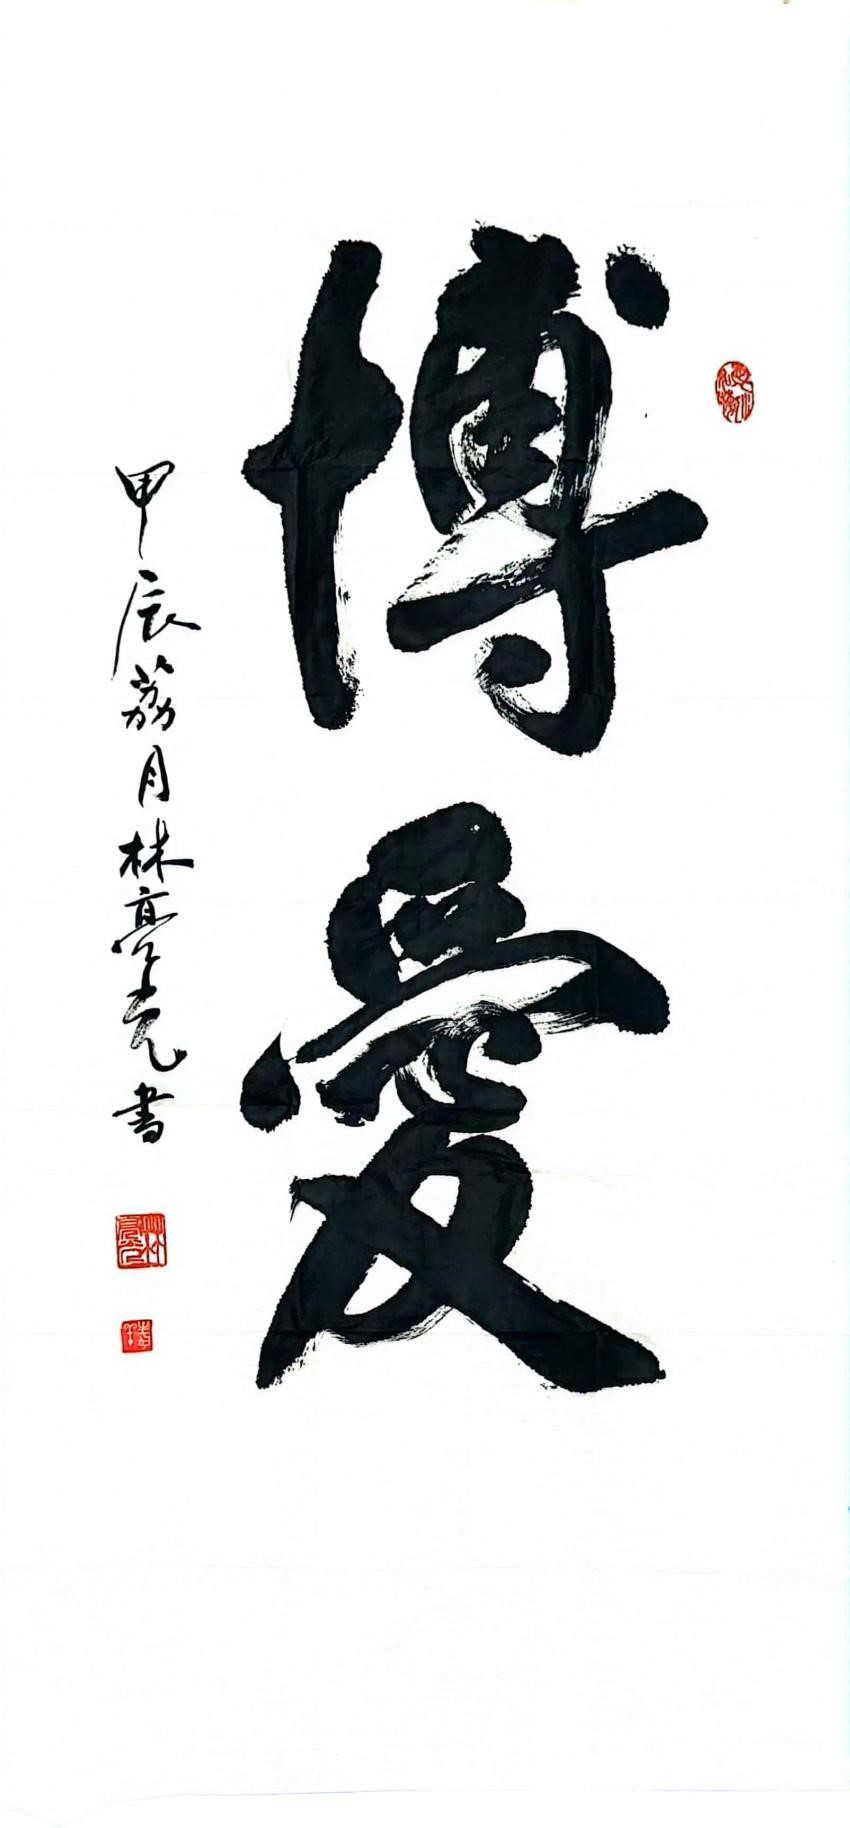 博愛
甲辰荔月林亭元書